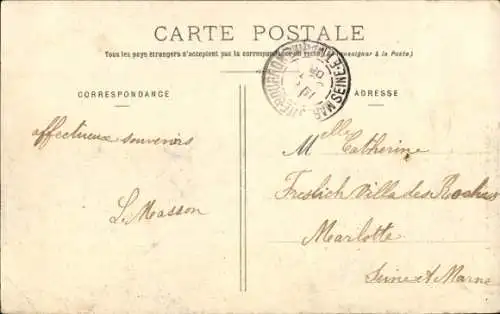 CARTE POSTALE
Tous les pays étrangers n'acceptent pas la correspondance au recto (Se renseigner à la Poste)
CORRESPONDANCE
ADRESSE
affectueux souvenirs
L. Masson
Melle Catherine
Freslich Villa des Roches
Marlotte
Seine et Marne